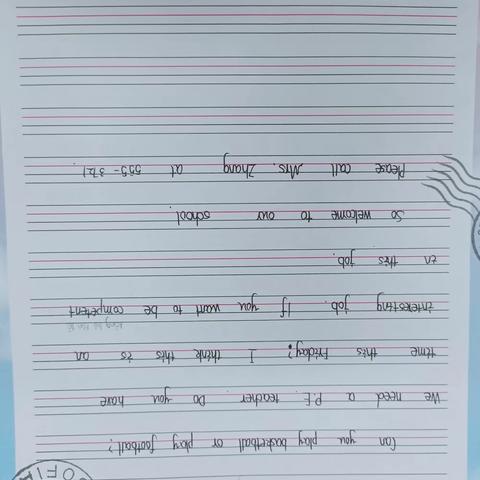 Can you play basketball or play football?
We need a P.E. teacher. Do you have
time this Friday? I think this is an
interesting job. If you want to be competent
in this job.
So welcome to our school.
Please call Mrs. Zhang at